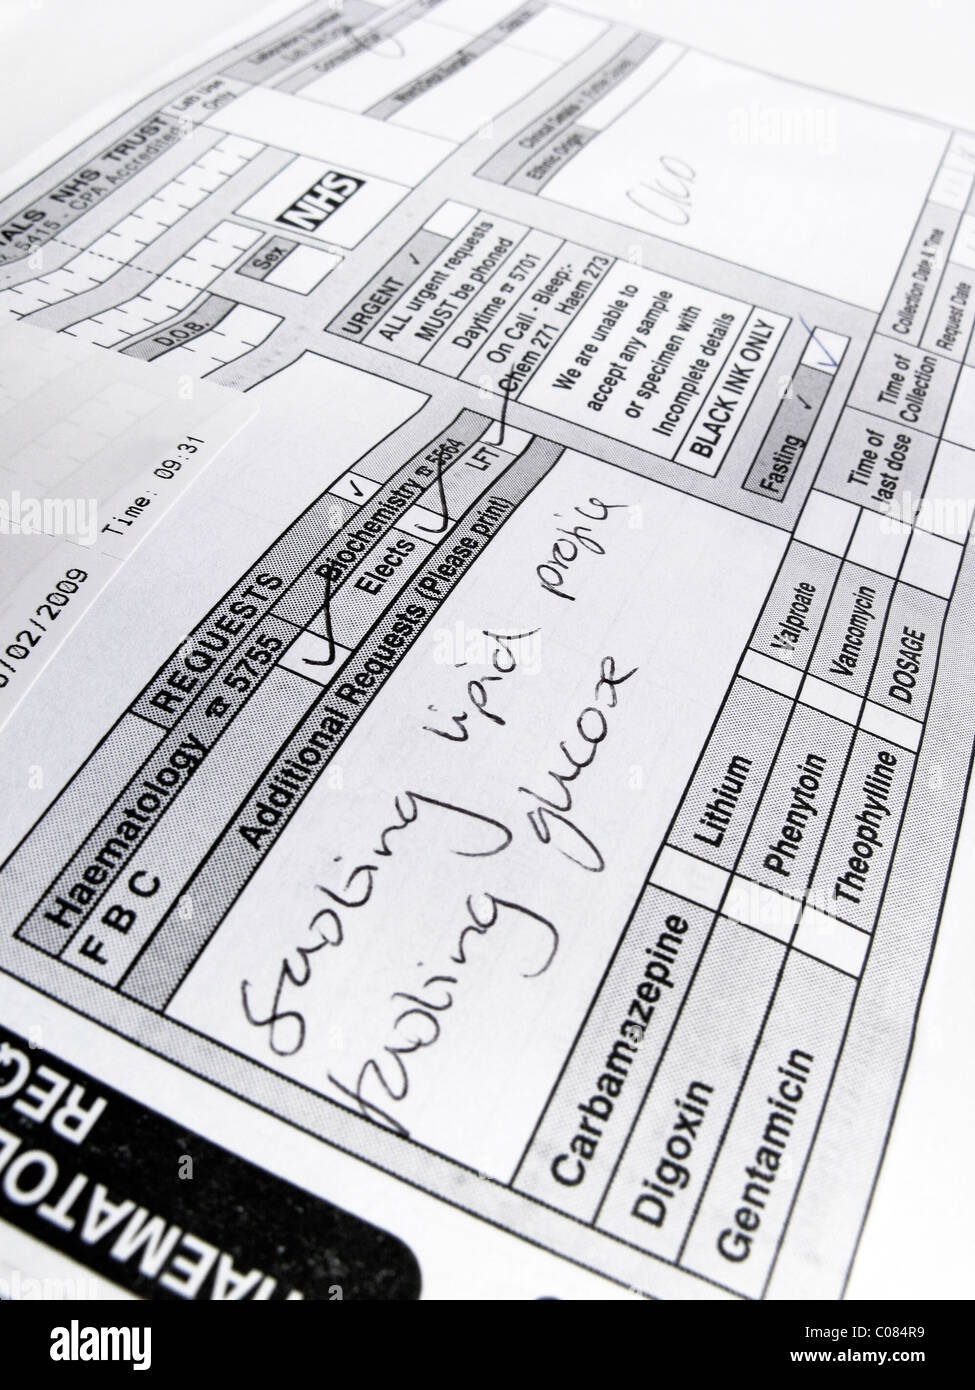 Laboratory Number
Lab Use Only
TALS NHS TRUST
5415 - CPA Accredited
Lab Use
Only
NHS
Sex
D.O.B.
Clinical Details
Ethnic Origin
URGENT ✓
ALL urgent requests
MUST be phoned
Daytime ☎ 5701
On Call - Bleep:-
Chem 271 Haem 273
We are unable to
accept any sample
or specimen with
Incomplete details
BLACK INK ONLY
Fasting ✓ ✓
Collection Date & Time
Request Date
Time: 09:31
/02/2009
REQUESTS ✓
Haematology ☎ 5755
Biochemistry ☎ 5564
FBC ✓
Elects ✓
LFT ✓
Additional Requests (Please print)
fasting lipid profile
fasting glucose
Time of
last dose
Time of
Collection
Carbamazepine
Lithium
Valproate
Digoxin
Phenytoin
Vancomycin
Gentamicin
Theophylline
DOSAGE
HAEMATOL
REQ
alamy
Image ID: C084R9
www.alamy.com